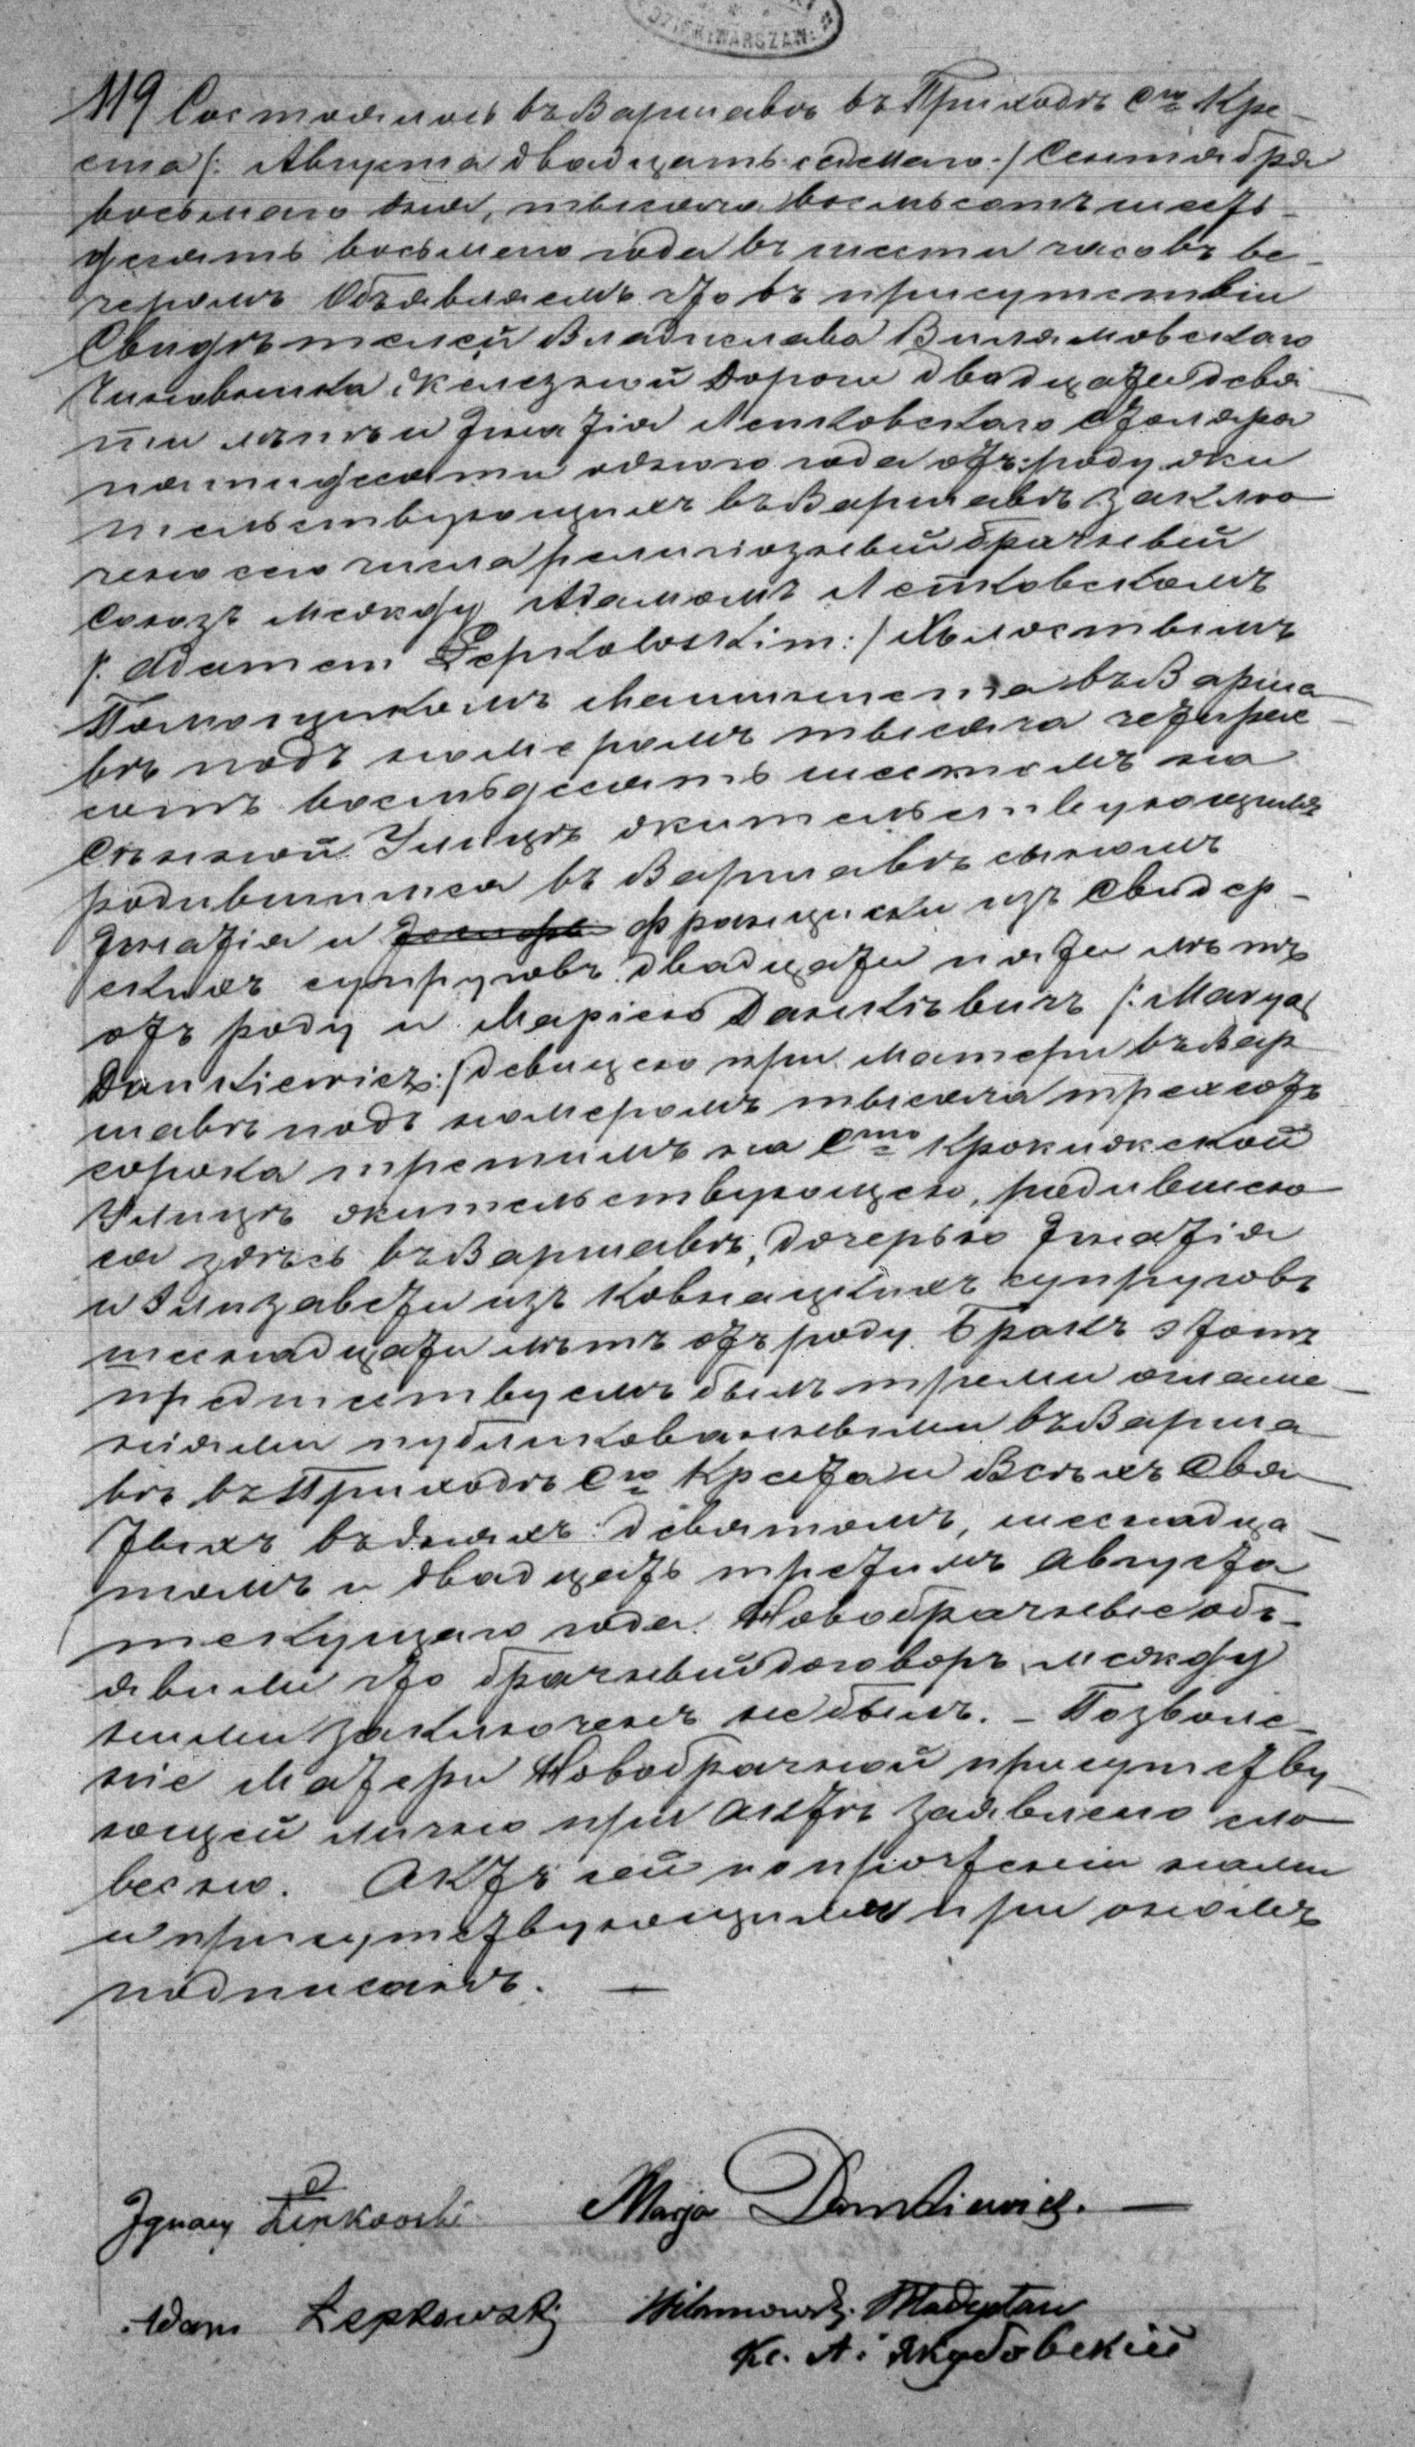 DZIEK: WARSZAW:
119 Состоялось въ Варшавѣ въ Приходѣ Сго Кре-
ста /: Августа двадцать седмаго :/ Сентября
восьмаго дня, тысяча восемьсотъ шесть-
десятъ восьмаго года въ шести часовъ ве-
черомъ Объявляемъ что въ присутствіи
Свидѣтелей Владислава Вилямовскаго
Чиновника Железной Дороги двадцати девя
ти лѣтъ и Игнатія Лепковскаго столяра
пятидесяти одного года отъ роду жи
тельствующихъ въ Варшавѣ заклю
чено сего числа религіозный брачный
союзъ между Адамомъ Лепковскомъ
/: Adamem Łepkowskim :/ Холостымъ
Помощникомъ Машиниста въ Варша
вѣ подъ номеромъ тысяча четырис-
сотъ восемьдесятъ шестомъ на
Сѣнной Улицѣ жительствующимъ
родившимся въ Варшавѣ сыномъ
Игнатія и Францишки изъ Свидер-
скихъ супруговъ двадцати пяти лѣтъ
отъ роду и Маріею Данкѣвичъ /: Maryą
Dankiewicz :/ девицею при Матери въ Вар
шавѣ подъ номеромъ тысяча трехсотъ
сорока третимъ на Сто Крокижской
Улицѣ жительствующею, родившею
ся здѣсь въ Варшавѣ, дочерью Игнатія
и Элизабети изъ Ковнацкихъ супруговъ
шеснадцати лѣтъ отъ роду. Бракъ этотъ
предшествуемъ былъ тремя оглаше-
ніями публикованными въ Варша
вѣ въ Приходѣ Сго Креста и Всѣхъ Свя
тыхъ въ дняхъ: девятомъ, шеснадца-
томъ и двадцать третимъ Августа
текущаго года. Новобрачные объ-
явили что брачный договоръ между
ними заключенъ не былъ. - Позволе-
ніе Матери Новобрачной присутству-
ющей лично при Актѣ заявлено сло
весно. Актъ сей по прочтеніи нами
и присутствующими при ономъ
подписанъ. —
Ignacy Łepkowski Marja Dankiewicz. —
Adam Łepkowski Wilamowski Władysław
Кс. А. Якубовскій